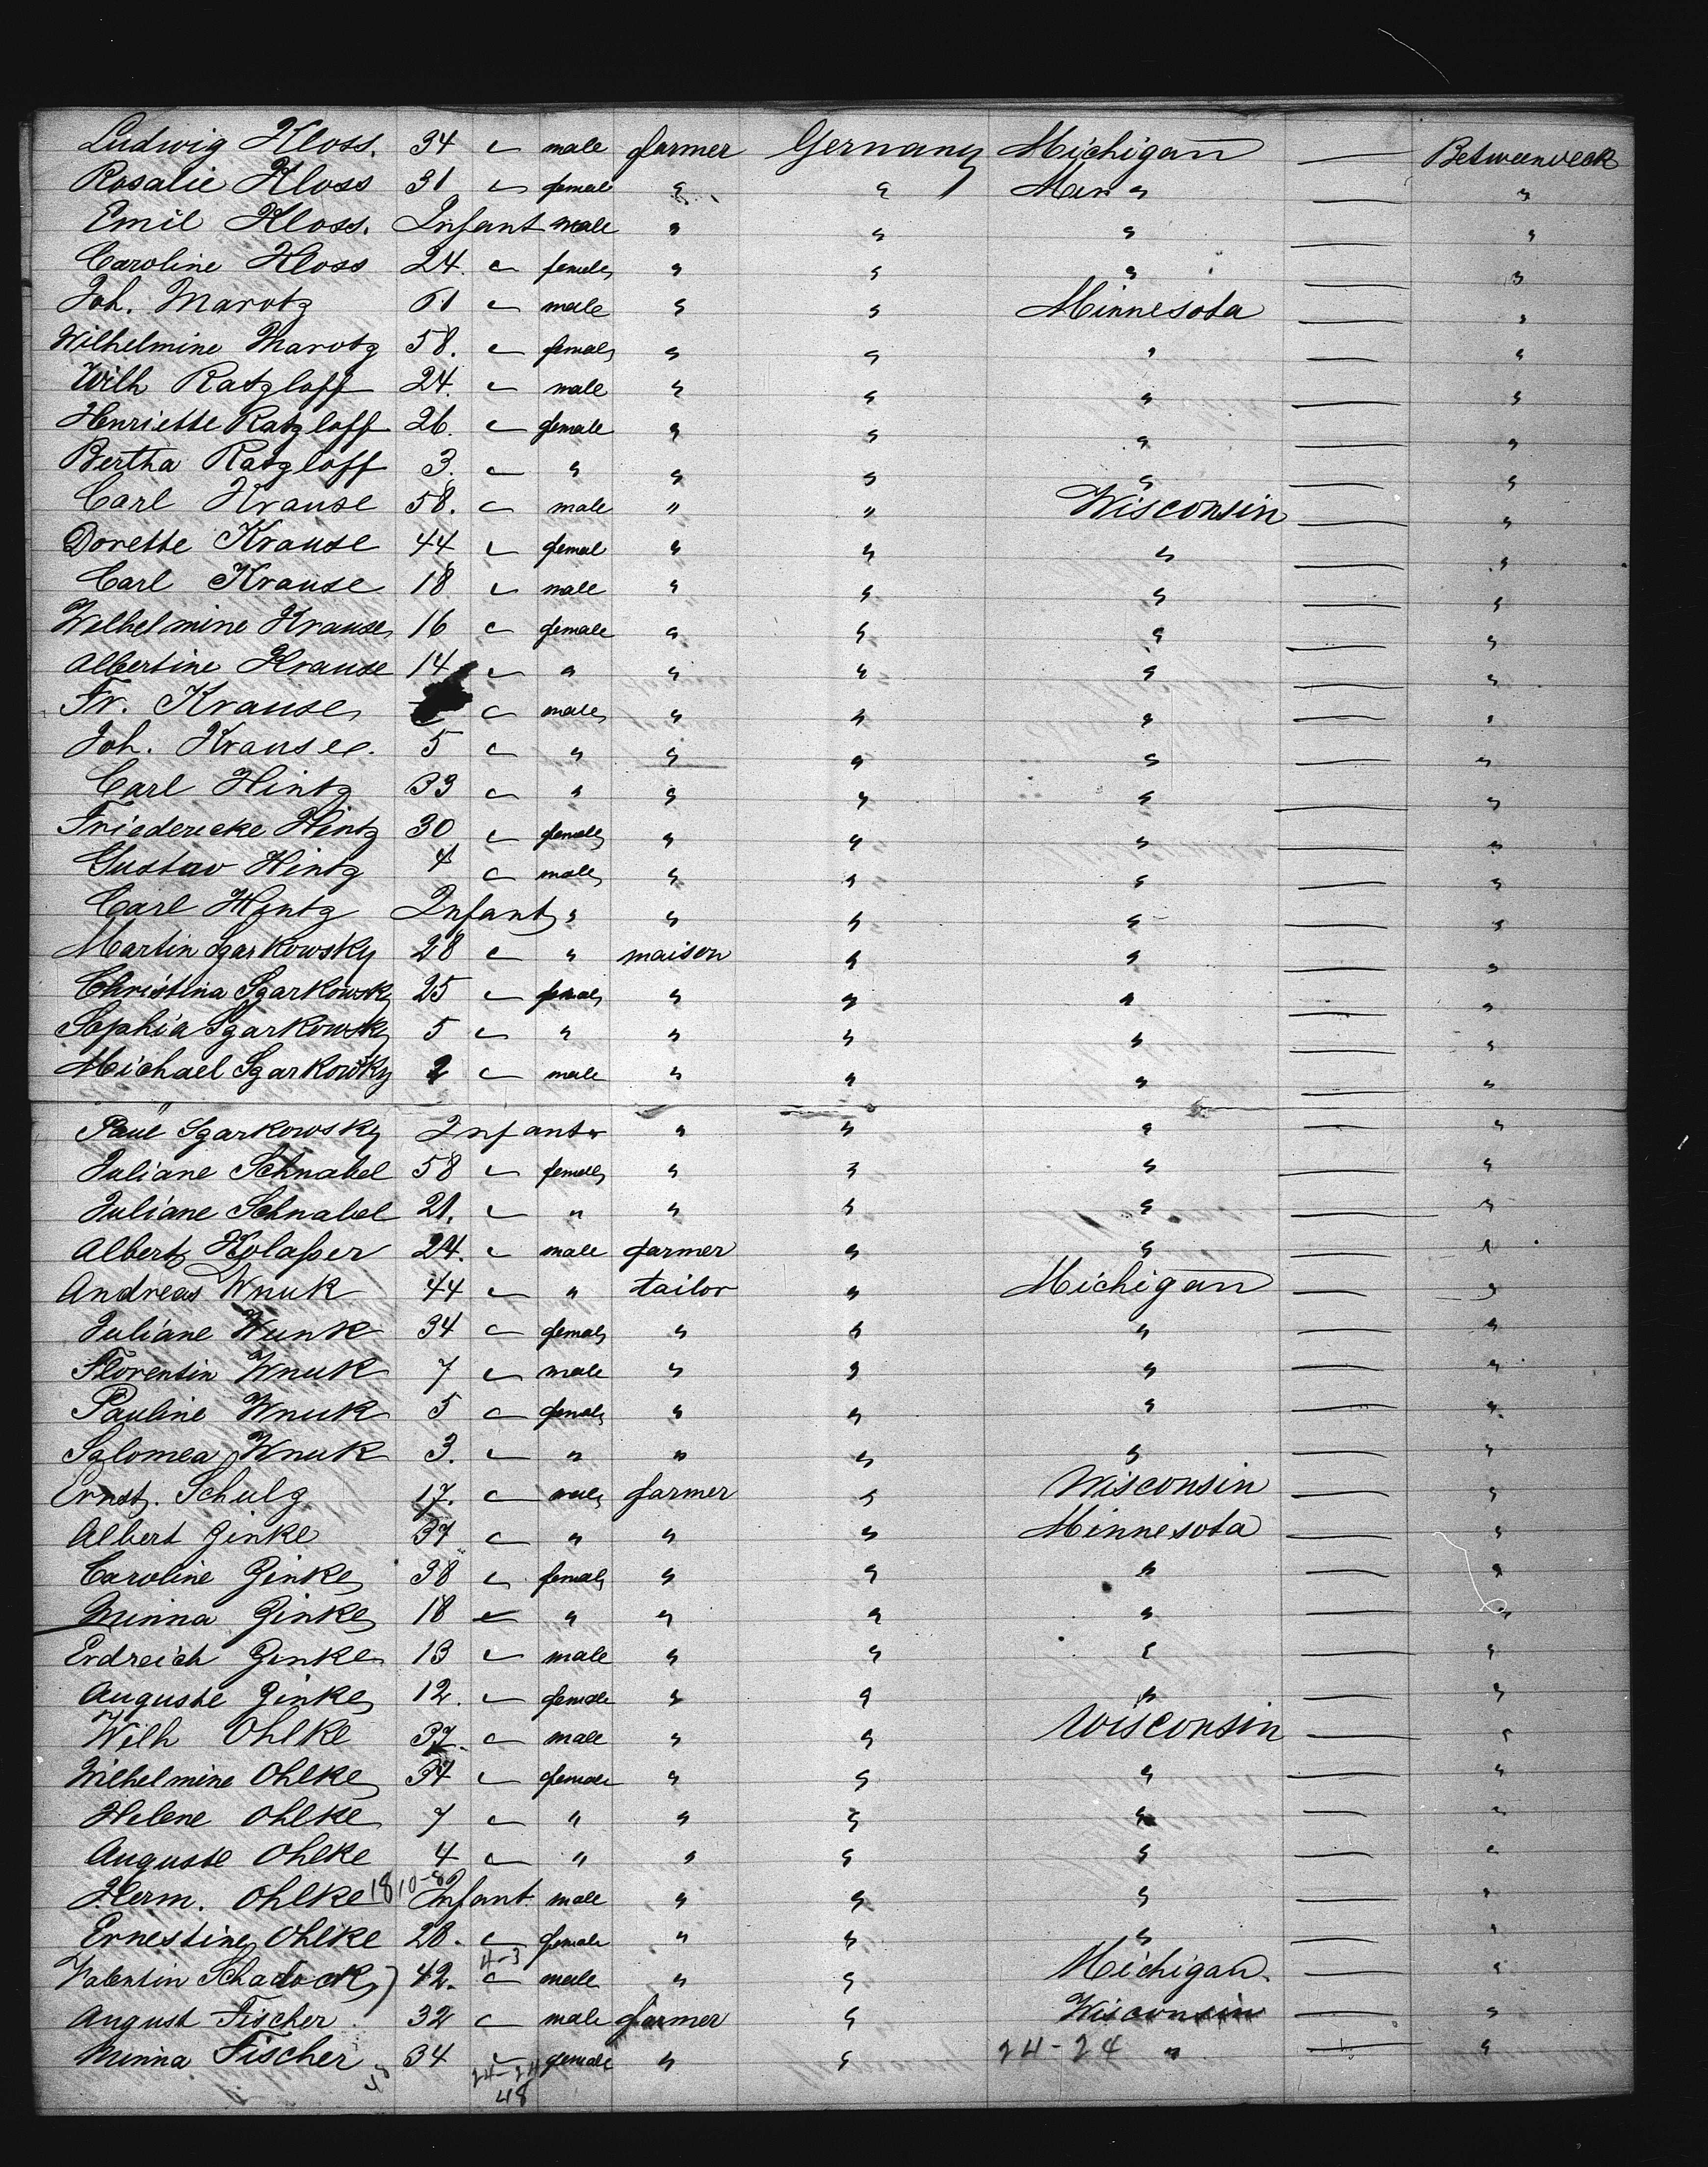 Ludwig Kloss. 34 male farmer Germany Michigan — Betweendeck
Rosalie Kloss 31 female " " " — "
Emil Kloss. Infant male " " " — "
Caroline Kloss 24. female " " " — "
Joh. Marotz 61 male " " Minnesota — "
Wilhelmine Marotz 58. female " " " — "
Wilh Ratzloff 24. male " " " — "
Henriette Ratzloff 26. female " " " — "
Bertha Ratzloff 3. " " " " — "
Carl Krause 58. male " " Wisconsin — "
Dorette Krause 44 female " " " — "
Carl Krause 18 male " " " — "
Wilhelmine Krause 16 female " " " — "
Albertine Krause 14 " " " " — "
Fr. Krause male " " " — "
Joh. Krause. 5 " " " " — "
Carl Hintz 33 " " " " — "
Friedericke Hintz 30 female " " " — "
Gustav Hintz 4 male " " " — "
Carl Hintz Infant " " " " — "
Martin Sgarkowsky 28 " maison " " — "
Christina Sgarkowsky 25 female " " " — "
Sophia Sgarkowsky 5 " " " " — "
Michael Sgarkowsky 2 male " " " — "
Paul Sgarkowsky Infant " " " "
Juliane Schnabel 58 female " " " — "
Juliane Schnabel 21. " " " " — "
Albert 24. male farmer " " — "
Andreas Wnuk 44 " tailor " Michigan — "
Juliane Wunk 34 female " " " — "
Florentin Wnuk 7 male " " " — "
Pauline Wnuk 5 female " " " — "
Salomea Wnuk 3. " " " " — "
Ernst. Schulz 17. male farmer " Wisconsin — "
Albert Zinke 37 " " " Minnesota — "
Caroline Zinke 38 female " " " — "
Minna Zinke 18 " " " " — "
Erdreich Zinke 13 male " " " — "
Auguste Zinke 12. female " " " — "
Wilh Ohlke 37. male " " Wisconsin — "
Wilhelmine Ohlke 34 female " " " — "
Helene Ohlke 7 " " " " — "
Auguste Ohlke 4 " " " " — "
Herm. Ohlke Infant. male " " " — "
Ernestine Ohlke 28. female " " " — "
Valentin Schadock 42. 4-3 male " " Michigan. — "
August Fischer. 32 male farmer " Wisconsin — "
Minna Fischer 34 female " " 24-24 " — "
24-24
48